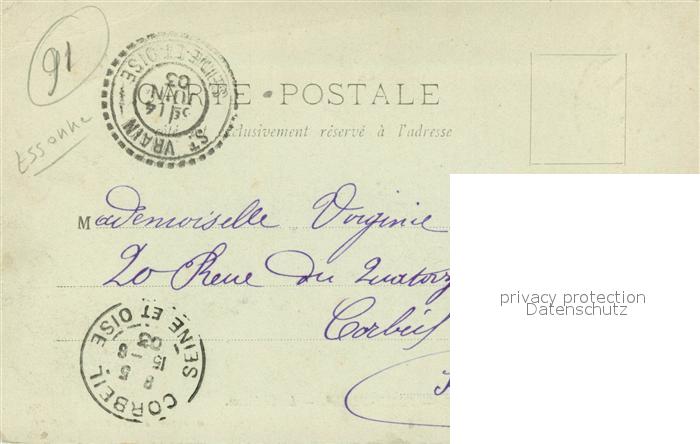 91
Essonne
SEINE-ET-OISE
14
JUIN
03
ST VRAIN
CARTE POSTALE
exclusivement réservé à l'adresse
Mademoiselle Virginie
20 Rue du Quatorz
Corbeil
CORBEIL
SEINE ET OISE
8 5
15 - 8
03
privacy protection
Datenschutz